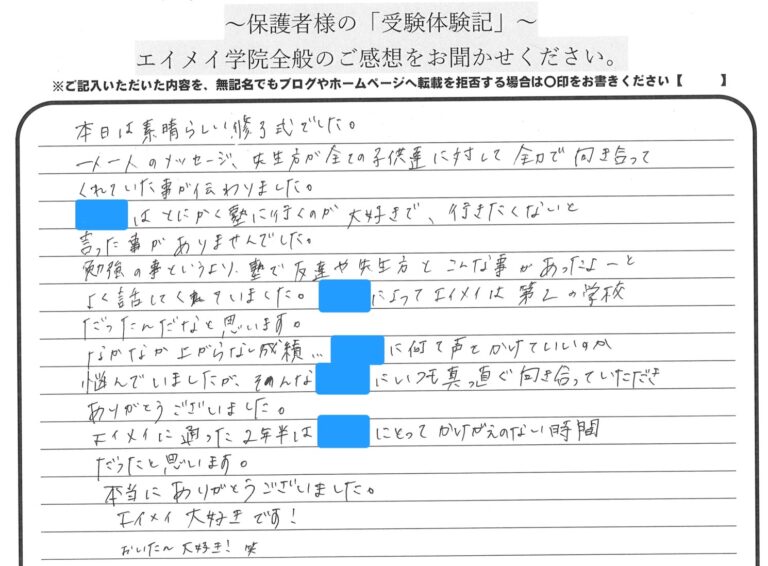 ～保護者様の「受験体験記」～
エイメイ学院全般のご感想をお聞かせください。
※ご記入いただいた内容を、無記名でもブログやホームページへ転載を拒否する場合は〇印をお書きください【　　】
本日は素晴らしい修了式でした。
一人一人のメッセージ、先生方が全ての子供達に対して全力で向き合って
くれていた事が伝わりました。
はとにかく塾に行くのが大好きで、行きたくないと
言った事がありませんでした。
勉強の事というより、塾で友達や先生方とこんな事があったよーと
よく話してくれていました。によってエイメイは第2の学校
だったんだなと思います。
なかなか上がらない成績…に何て声をかけていいのか
悩んでいましたが、そのんなにいつも真っ直ぐ向き合っていただき
ありがとうございました。
エイメイに通った2年半はにとってかけがえのない時間
だったと思います。
本当にありがとうございました。
エイメイ大好きです！
おいたん大好き！笑